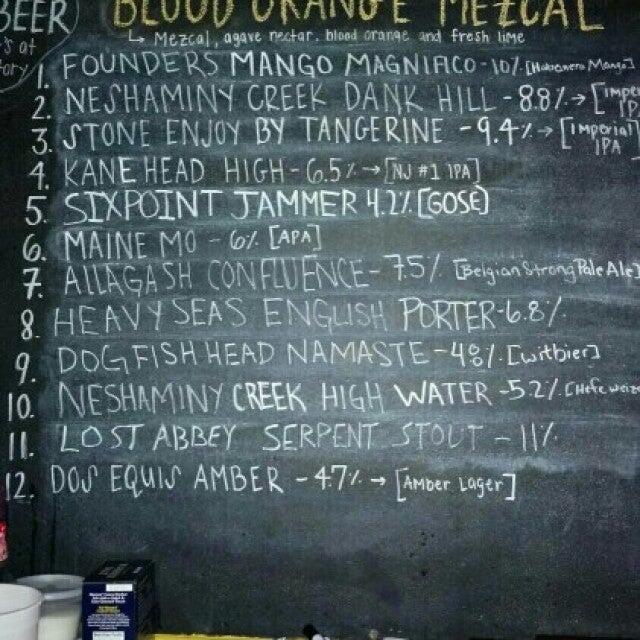 BEER
BLOOD ORANGE MEZCAL
↳ Mezcal, agave nectar, blood orange and fresh lime
1. FOUNDERS MANGO MAGNIFICO-10% [Habanero Mango]
2. NESHAMINY CREEK DANK HILL - 8.8% → [Imper
IPA
3. STONE ENJOY BY TANGERINE - 9.4% → [Imperial]
IPA
4. KANE HEAD HIGH - 6.5% → [NJ #1 IPA]
5. SIXPOINT JAMMER 4.2% [GOSE]
6. MAINE MO - 6% [APA]
7. ALLAGASH CONFLUENCE - 7.5% [Belgian Strong Pale Ale]
8. HEAVY SEAS ENGLISH PORTER-6.8%
9. DOGFISH HEAD NAMASTE - 4.8% [witbier]
10. NESHAMINY CREEK HIGH WATER - 5.2% [Hefe weiz
11. LOST ABBEY SERPENT STOUT - 11%
12. DOS EQUIS AMBER - 4.7% → [Amber Lager]